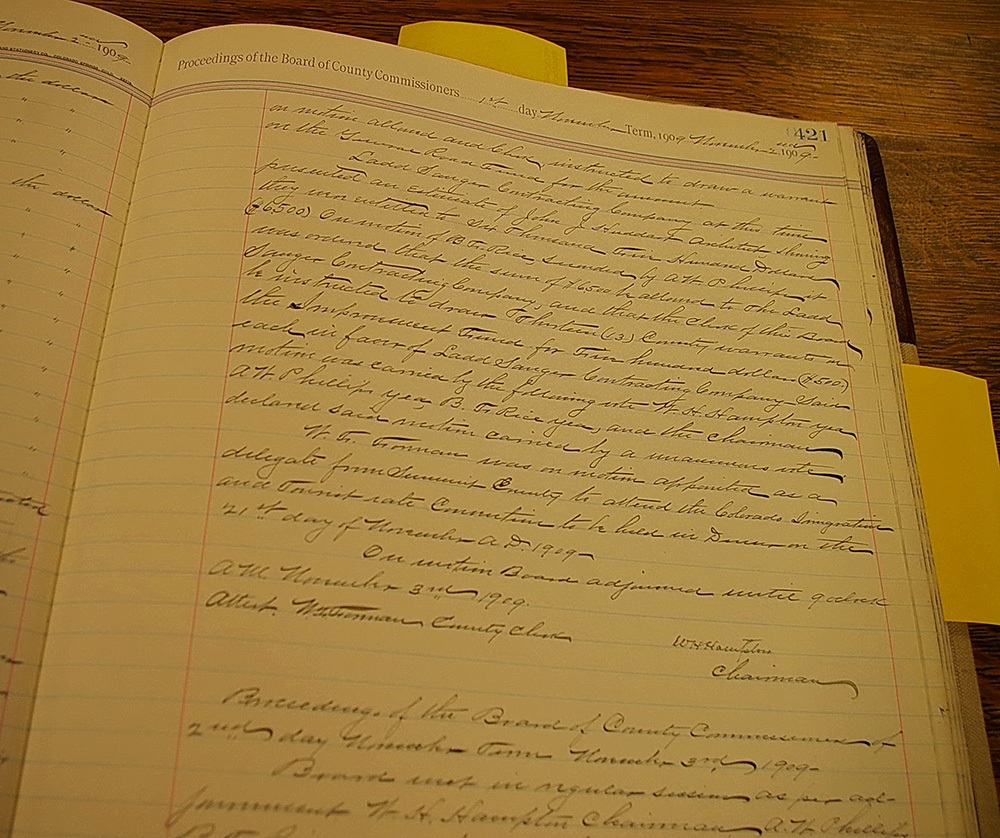 November 2nd 1909
the dollars
" "
" "
" "
the dollars
" "
" "
Proceedings of the Board of County Commissioners 1st day November Term, 1909 November 2nd 1909-
421
on motion allowed and Clerk instructed to draw a warrant
on the Road Fund for the amount
Ladd Sanger Contracting Company at this time
presented an estimate of John J Huddart Architect showing
they were entitled to Six Thousand Five Hundred Dollars
($6500) On motion of B. F. Rice seconded by A.W. Phillips it
was ordered that the sum of $6500 be allowed to The Ladd
Sanger Contracting Company, and that the Clerk of this Board
be instructed to draw Thirteen (13) County warrants on
the Improvement Fund for Five hundred dollars ($500)
each in favor of Ladd Sanger Contracting Company Said
motion was carried by the following vote W. H. Hampton yea
A. W. Phillips yea, B. F. Rice yea, and the Chairman
declared said motion carried by a unanimous vote
W. F. Forman was on motion appointed as a
delegate from Summit County to attend the Colorado Imigration
and Tourist rate Convention to be held in Denver on the
21st day of November A.D. 1909-
On motion Board adjourned until 9 oclock
A.M. November 3rd 1909.
Attest. W. F. Forman County Clerk
W. H. Hampton
Chairman
Proceedings of the Board of County Commissioners of
2nd day November Term November 3rd 1909-
Board met in regular session as per ad-
journment W. H. Hampton Chairman A.W. Phillips
B. F. Rice